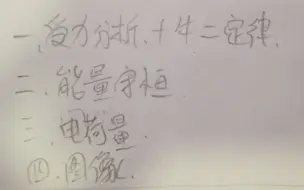 一、受力分析. + 牛二定律.
二、能量守恒
三、电荷量.
四、图像.